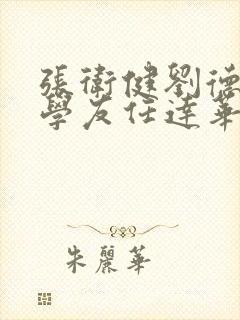 張衛健劉德
學友任達華
朱麗華